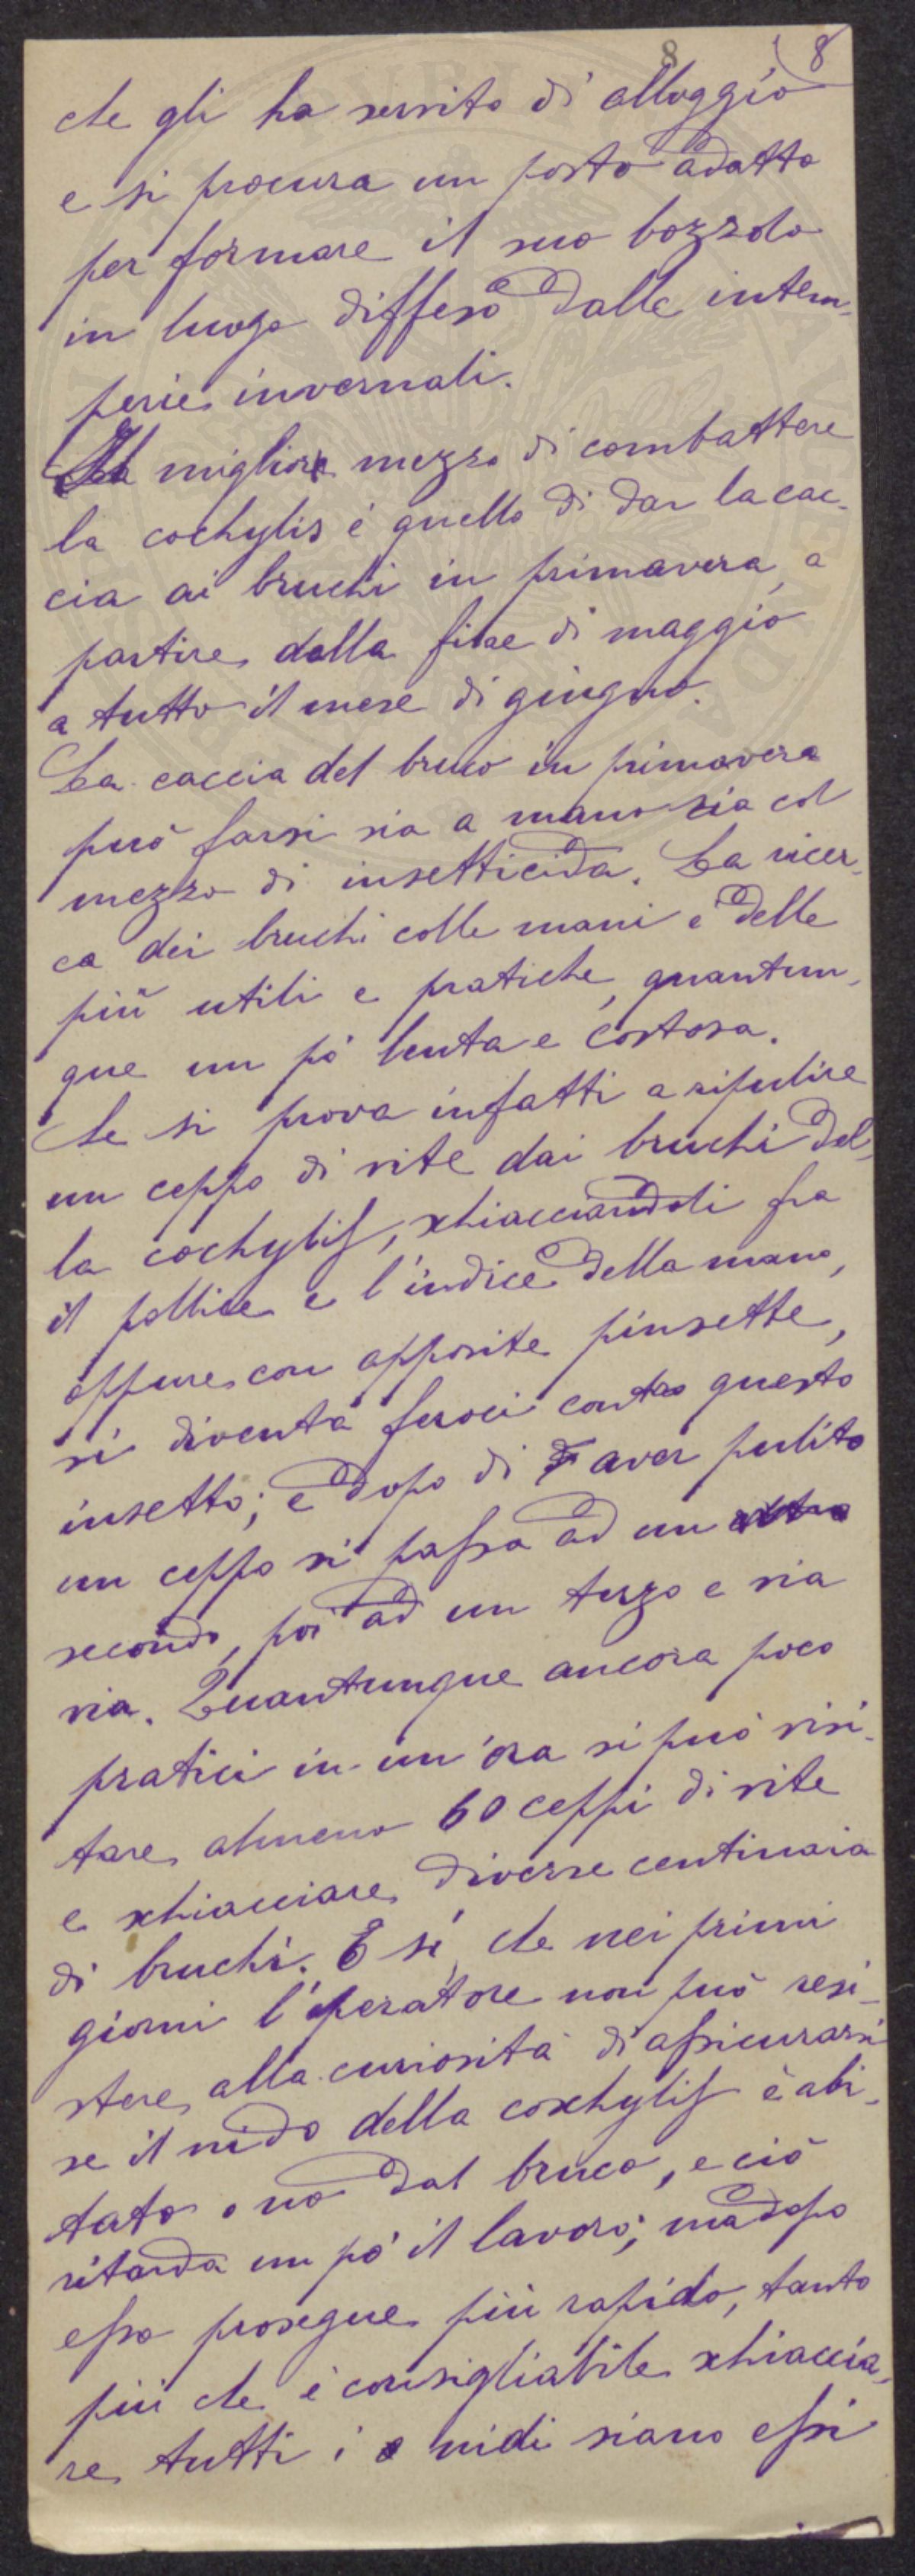 8 8
che gli ha servito di alloggio
e si procura un posto adatto
per formare il suo bozzolo
in luogo diffeso dalle intem-
perie invernali.
Il miglior mezzo di combattere
la cochylis è quello di dar la cac-
cia ai bruchi in primavera, a
partire dalla fine di maggio
a tutto il mese di giugno.
La caccia del bruco in primavera
può farsi sia a mano sia col
mezzo di insetticida. La ricer-
ca dei bruchi colle mani è delle
più utili e pratiche, quantun-
que un pò lenta e costosa.
Se si prova infatti a ripulire
un ceppo di vite dai bruchi del-
la cochylis, schiacciandoli fra
il pollice e l'indice della mano,
oppure con apposite pinsette,
si diventa feroci contro questo
insetto; e dopo di aver pulito
un ceppo si passa ad un altro
secondo, poi ad un terzo e via
via. Quantunque ancora poco
pratici in un'ora si può visi-
tare almeno 60 ceppi di vite
e schiacciare diverse centinaia
di bruchi. E sì, che nei primi
giorni l'operatore non può resi-
stere alla curiosità di assicurarsi
se il nido della coschylis è abi-
tato o no dal bruco, e ciò
ritarda un pò il lavoro; ma dopo
esso prosegue più rapido, tanto
più che è consigliabile schiaccia-
re tutti i nidi siano essi